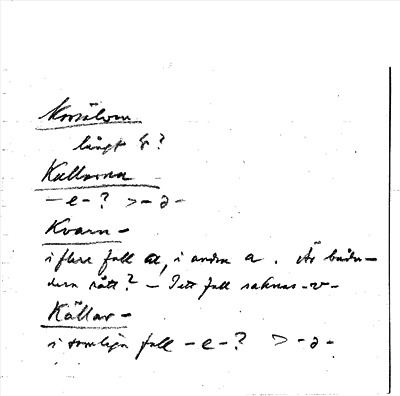 Korsälven
långt ?
Kullarna
-e-? > -ə-
Kvarn-
i flera fall a, i andra a. Är båda-
dera rätt? - I ett fall saknas -v-
Källar-
i somliga fall -e-? > -ə-